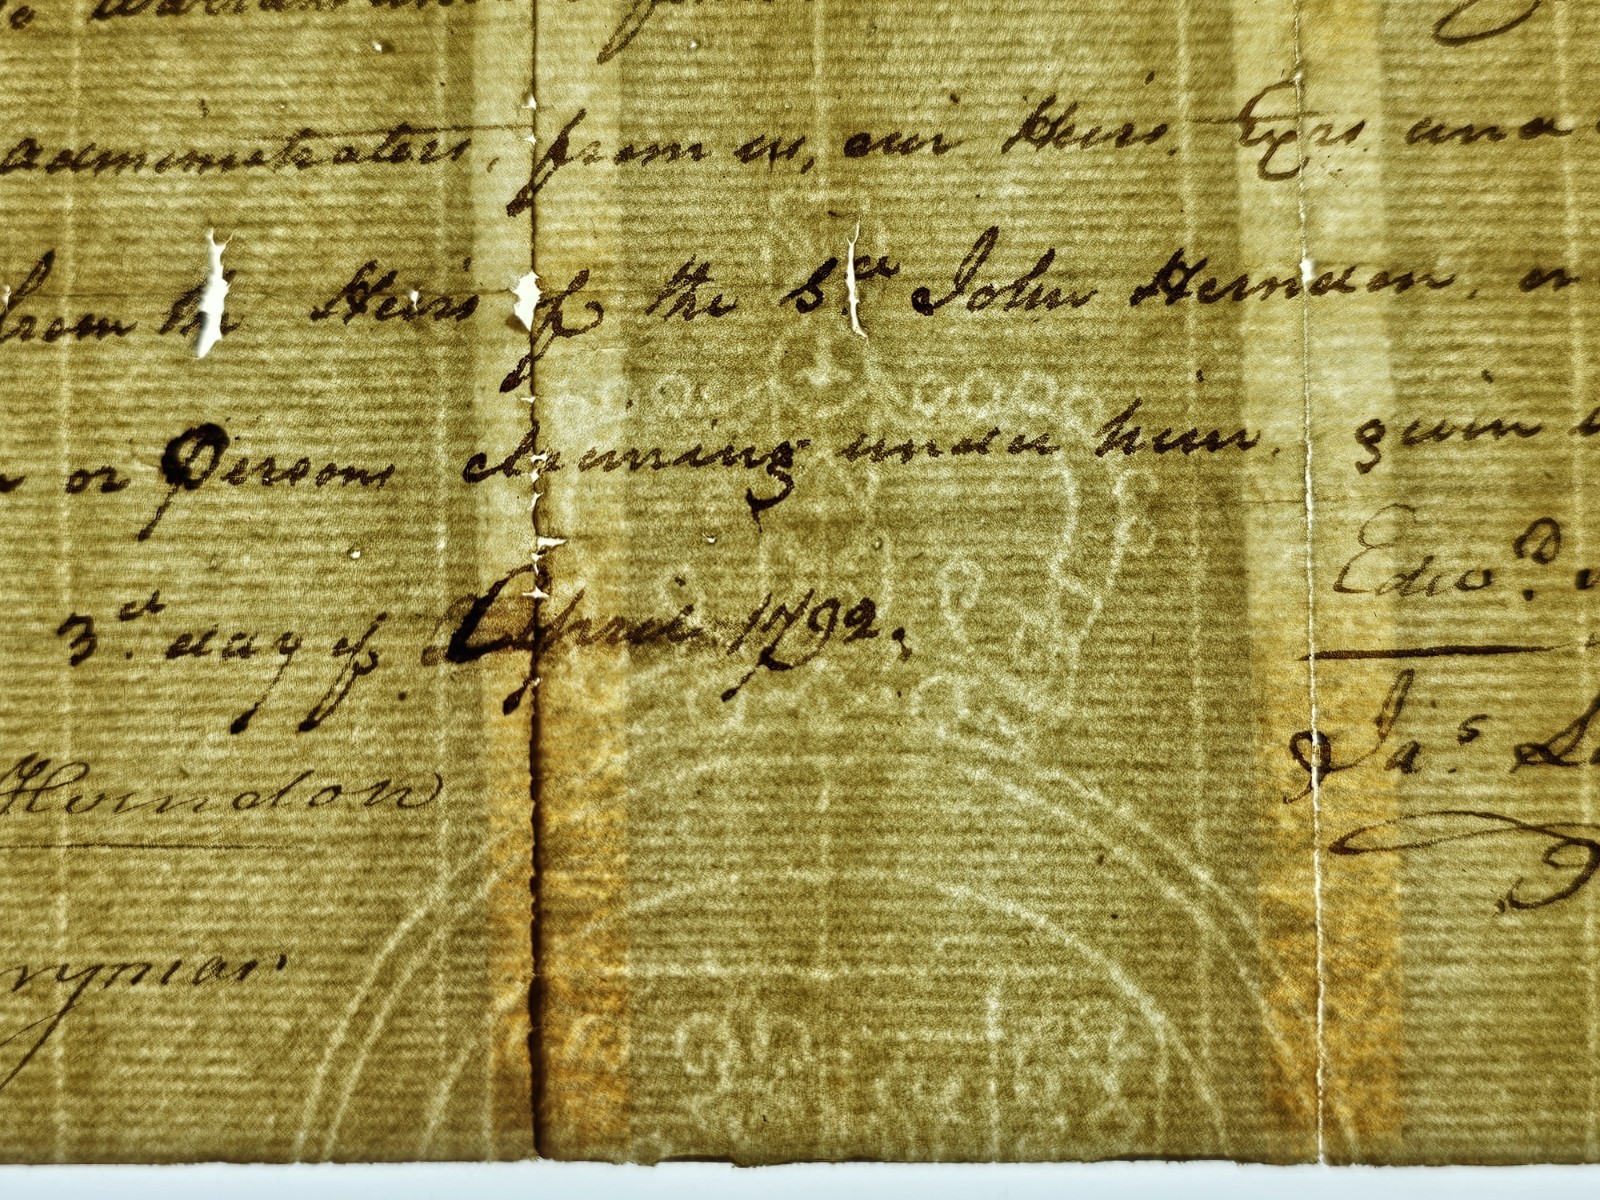 administrators, from us, our Heirs. Exrs. and
from the Heirs of the Sd John Herndon, or
or Persons claiming under him. given
3d. day of April 1792.
Edwd.
Jas.
Herndon
ryman